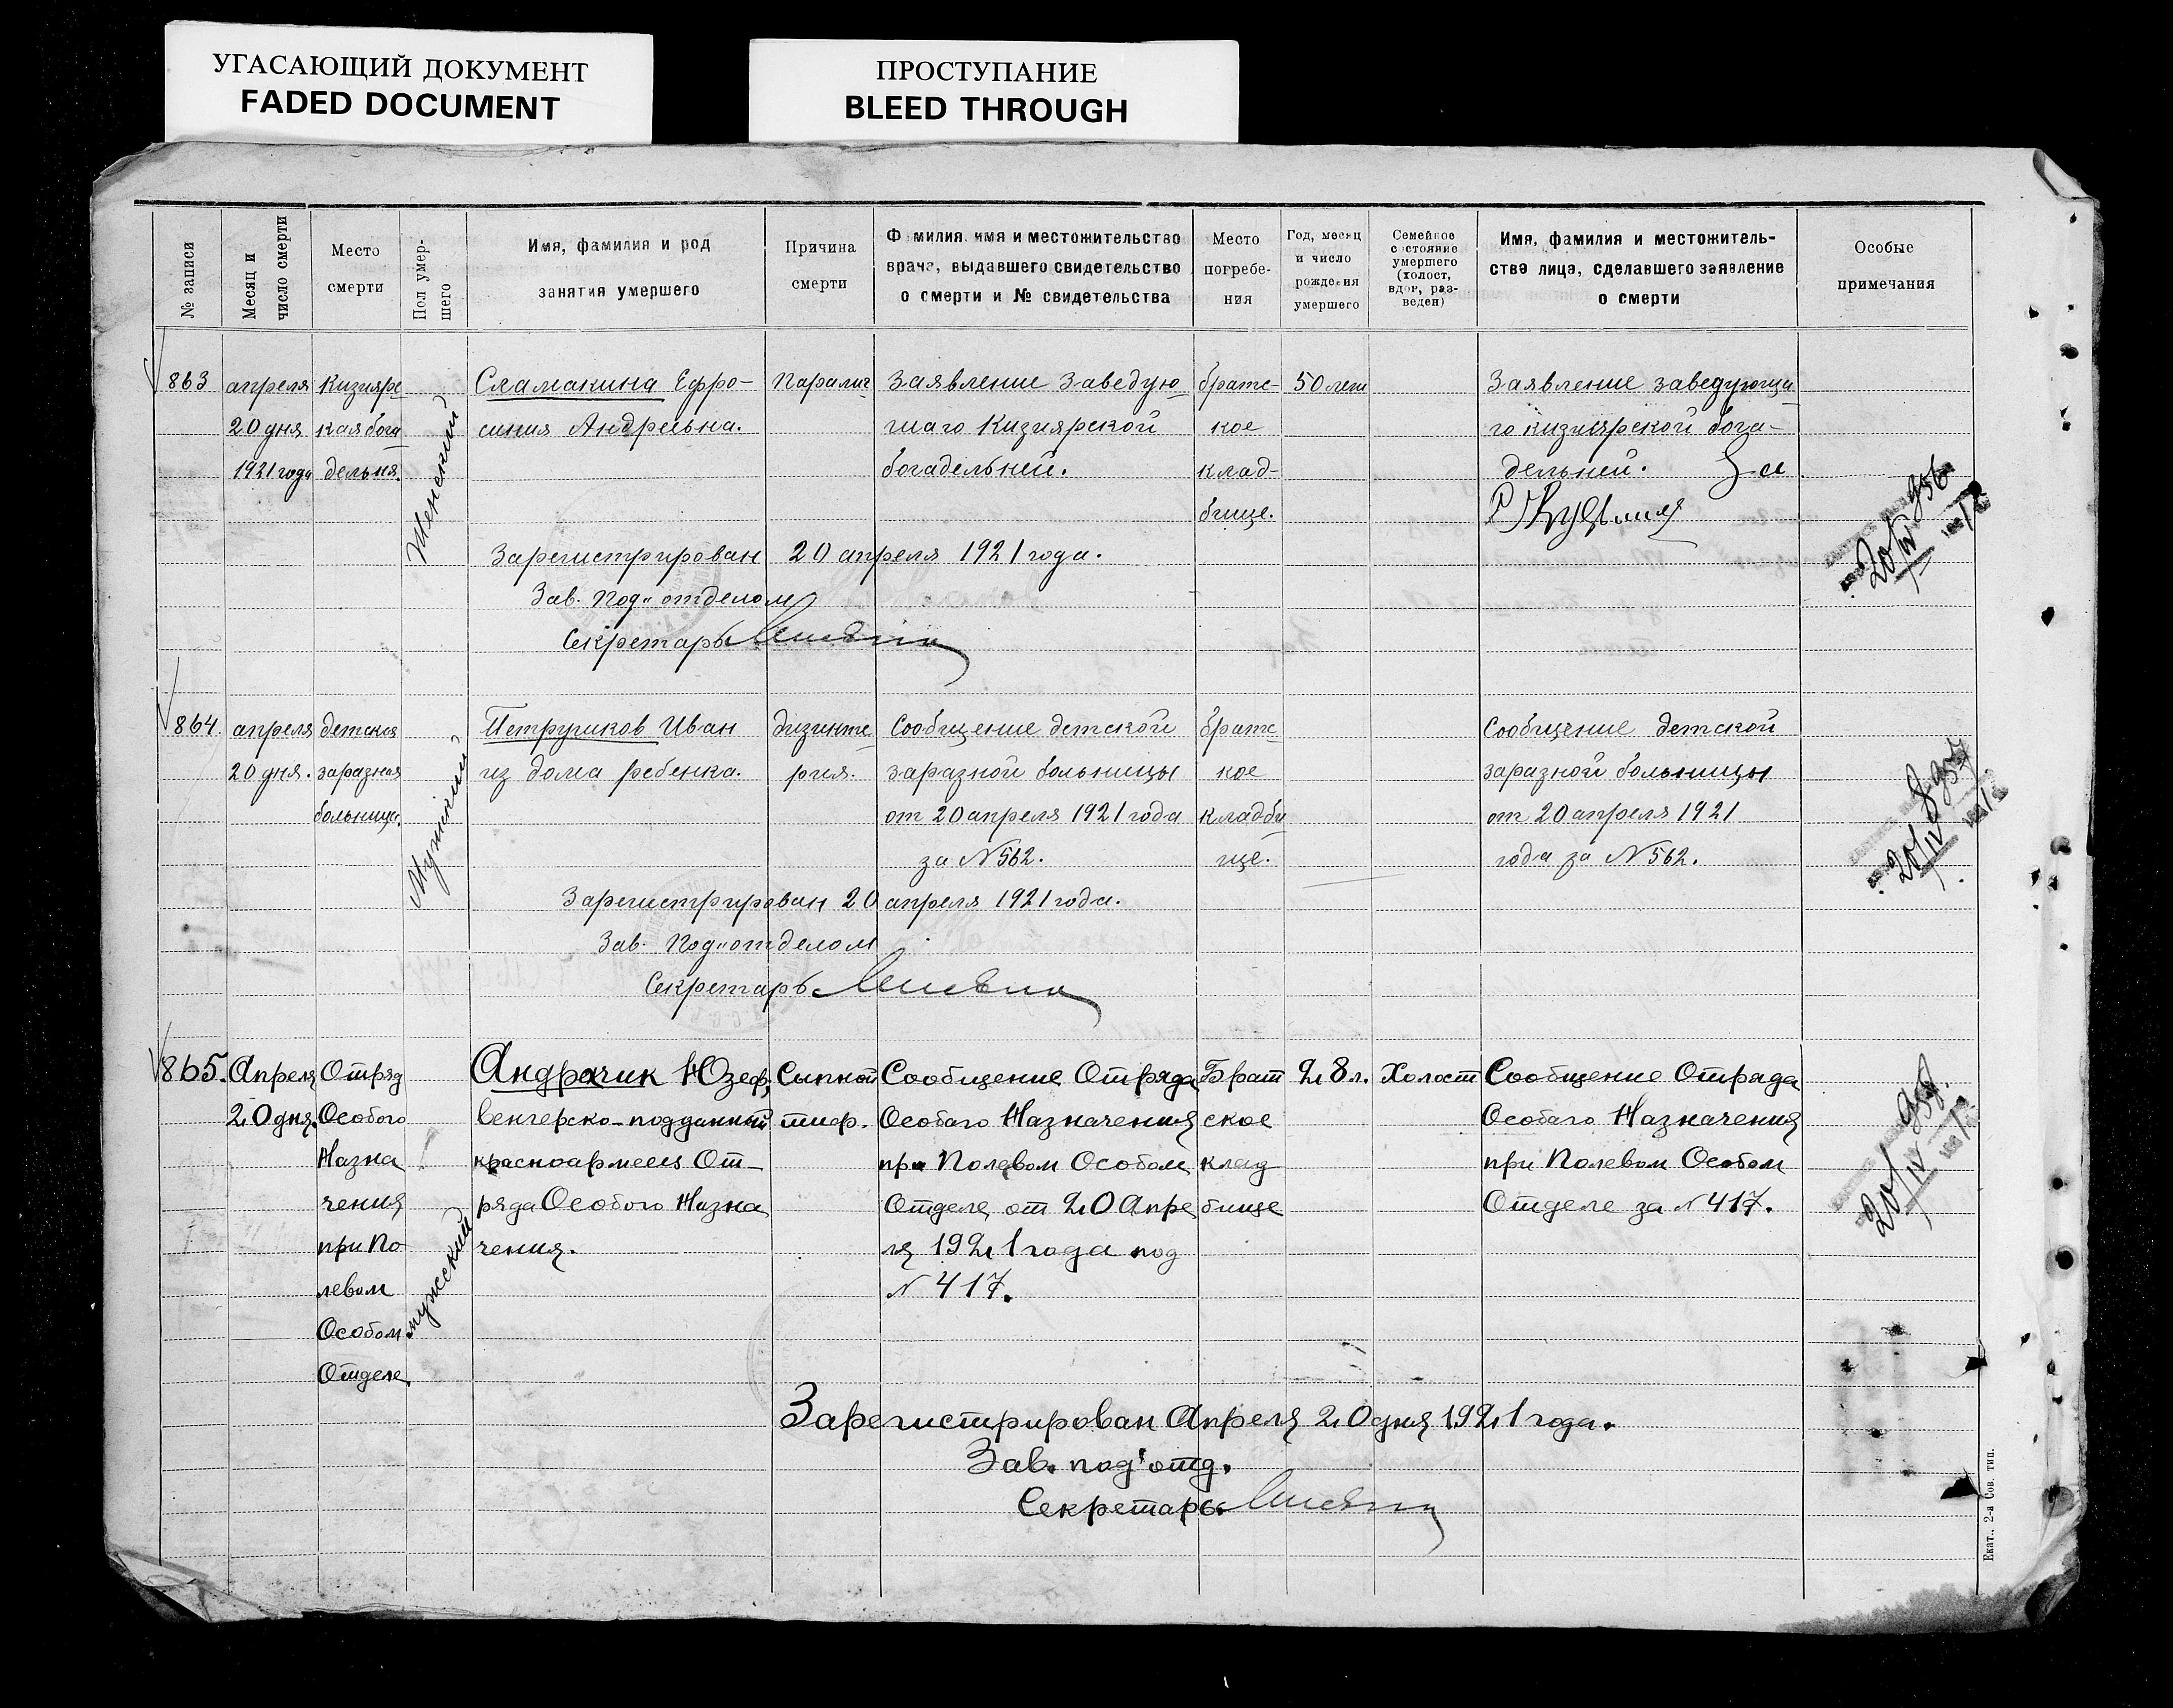 УГАСАЮЩИЙ ДОКУМЕНТ
FADED DOCUMENT
ПРОСТУПАНИЕ
BLEED THROUGH
№ записи
Месяц и число смерти
Место смерти
Пол умер-
шего
Имя, фамилия и род
занятия умершего
Причина
смерти
Ф милия имя и местожительство
врача, выдавшего свидетельство
о смерти и № свидетельства
Место
погребе-
ния
Год, месяц
и число
рождения
умершего
Семейное
состояние
умершего
(холост,
вдов, раз-
веден)
Имя, фамилия и местожитель-
ство лица, сделавшего заявление
о смерти
Особые
примечания
863
апреля
20 дня
1921 года
Кизиярс
кая бога
дельня.
Женский
Сламакина Ефро-
синия Андреевна.
Паралич
Заявление Заведую
щаго Кизиярской
богадельней.
братс-
кое
клад-
бище.
50 лет
Заявление заведующи
го кизиярской бога-
дельней. За
Зарегистрирован 20 апреля 1921 года.
Зав. Под"отделом
Секретарь
956
20/IV
864.
апреля
20 дня.
детская
заразная
больница.
Мужский
Петрушков Иван
из дома ребенка.
дизинте
рия.
Сообщение детской
заразной больницы
от 20 апреля 1921 года
за № 562.
братс
кое
кладби
ще.
Сообщение детской
заразной больницы
от 20 апреля 1921
года за № 562.
Зарегистрирован 20 апреля 1921 года.
Зав. Под"отделом
Секретарь
957
20/IV
865.
Апреля
20 дня.
Отряд
Особого
Назна
чения
при По
левом
Особом
Отделе.
мужсский
Андрачик Юзеф,
венгерско-подданный
красноармеец От-
ряда Особого Назна
чения.
Сыпной
тиф.
Сообщение Отряда
Особаго Назначения
при Полевом Особом
Отделе от 20 Апре
ля 1921 года под
№ 417.
Брат
ское
клад
бище
28 л.
Холост
Сообщение Отряда
Особаго Назначения
при Полевом Особом
Отделе за № 417.
Зарегистрирован Апреля 20 дня 1921 года.
Зав. под'отд.
Секретарь
958
20/IV
Екат., 2-я Сов. тип.